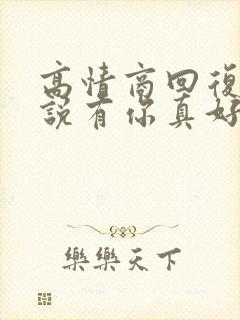 高情商回復
說有你真好
樂樂天下